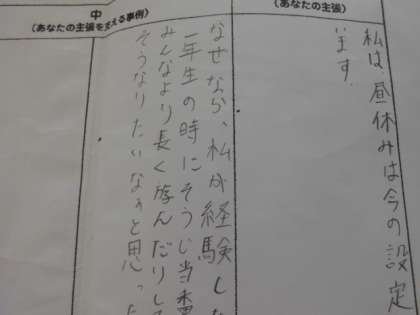 (あなたの主張)
私は、昼休みは今の設定
います。
中
(あなたの主張を支える事例)
なぜなら、私が経験した
一年生の時にそうじ当番
みんなより長く遊んだりして
そうなりたいなぁと思った